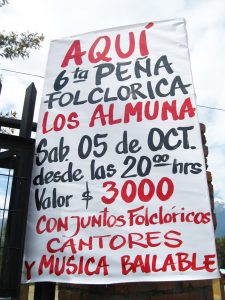 AQUÍ
6ta PEÑA
FOLCLORICA
LOS ALMUNA
Sab. 05 de OCT.
desde las 20:00 hrs
Valor $ 3000
CONJUNTOS Folclóricos
CANTORES
Y MUSICA BAILABLE